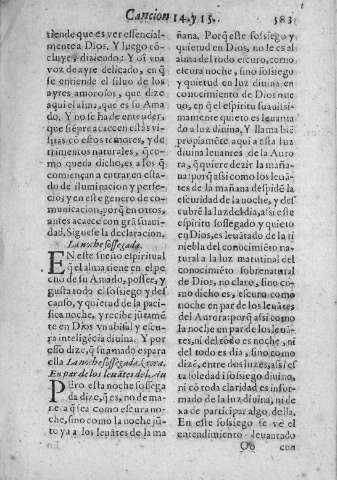 Cancion 14. y 15. 583
tiende que es ver essencial-
mente a Dios. Y luego cõ-
cluye, diziendo: Y oî vna
voz de ayre delicado, en q̃
se entiende el siluo de los
ayres amorosos, que dize
aqui el alma, que es su Ama
do. Y no se ha de entender,
que siẽpre acaecen estas vi-
sitas cõ estos temores, y de-
trimentos naturales, q̃ co-
mo queda dicho, es a los q̃
comiençan a entrar en esta-
do de iluminacion y perfe-
ciõ, y en este genero de co-
municacion, porq̃ en otros,
antes acaece con grã suaui-
dad. Siguese la declaracion.
La noche sossegada.
EN este sueño espiritual
q̃ el alma tiene en el pe-
cho de su Amado, possee, y
gusta todo el sossiego y des-
canso, y quietud de la paci-
fica noche, y recibe jũtamẽ-
te en Dios vn abisal y escu-
ra inteligẽcia diuina. Y por
esso dize, q̃ su amado es para
ella La noche sossegada.
En par de los leuãtes del
PEro esta noche sossega
da dize, q̃ es, no de ma-
nera q̃ sea como escura no-
che, sino como la noche jũ-
to ya a los leuãtes de la ma
ñana. Porq̃ este sossiego y
quietud en Dios, no le es al
alma del todo escuro, como
escura noche, sino sossiego
y quietud en luz diuina en
conocimiento de Dios nue
uo, en q̃ el espiritu suauissi-
mamente quieto es leuanta
do a luz diuina. Y llama biẽ
propiamẽte aqui a esta luz
diuina leuantes de la Auro-
ra, q̃ quiere dezir la maña-
na: porq̃ assi como los leuã-
tes de la mañana despidẽ la
escuridad de la noche, y des-
cubrẽ la luz del dia, assi este
espiritu sossegado y quieto
en Dios, es leuãtado de la ti
niebla del conocimiẽto na-
tural a la luz matutinal del
conocimiẽto sobrenatural
de Dios, no claro, sino co-
mo dicho es, escuro como
noche en par de los leuantes
del Aurora: porq̃ assi como
la noche en par de los leuã-
tes, ni del todo es noche, ni
del todo es dia, sino como
dize, entre dos luzes, assi es
ta soledad y sossiego diuino,
ni cõ toda claridad es infor-
mado de la luz diuina, ni de
xa de participar algo della.
En este sossiego se vè el
entendimiento leuantado
Oo con